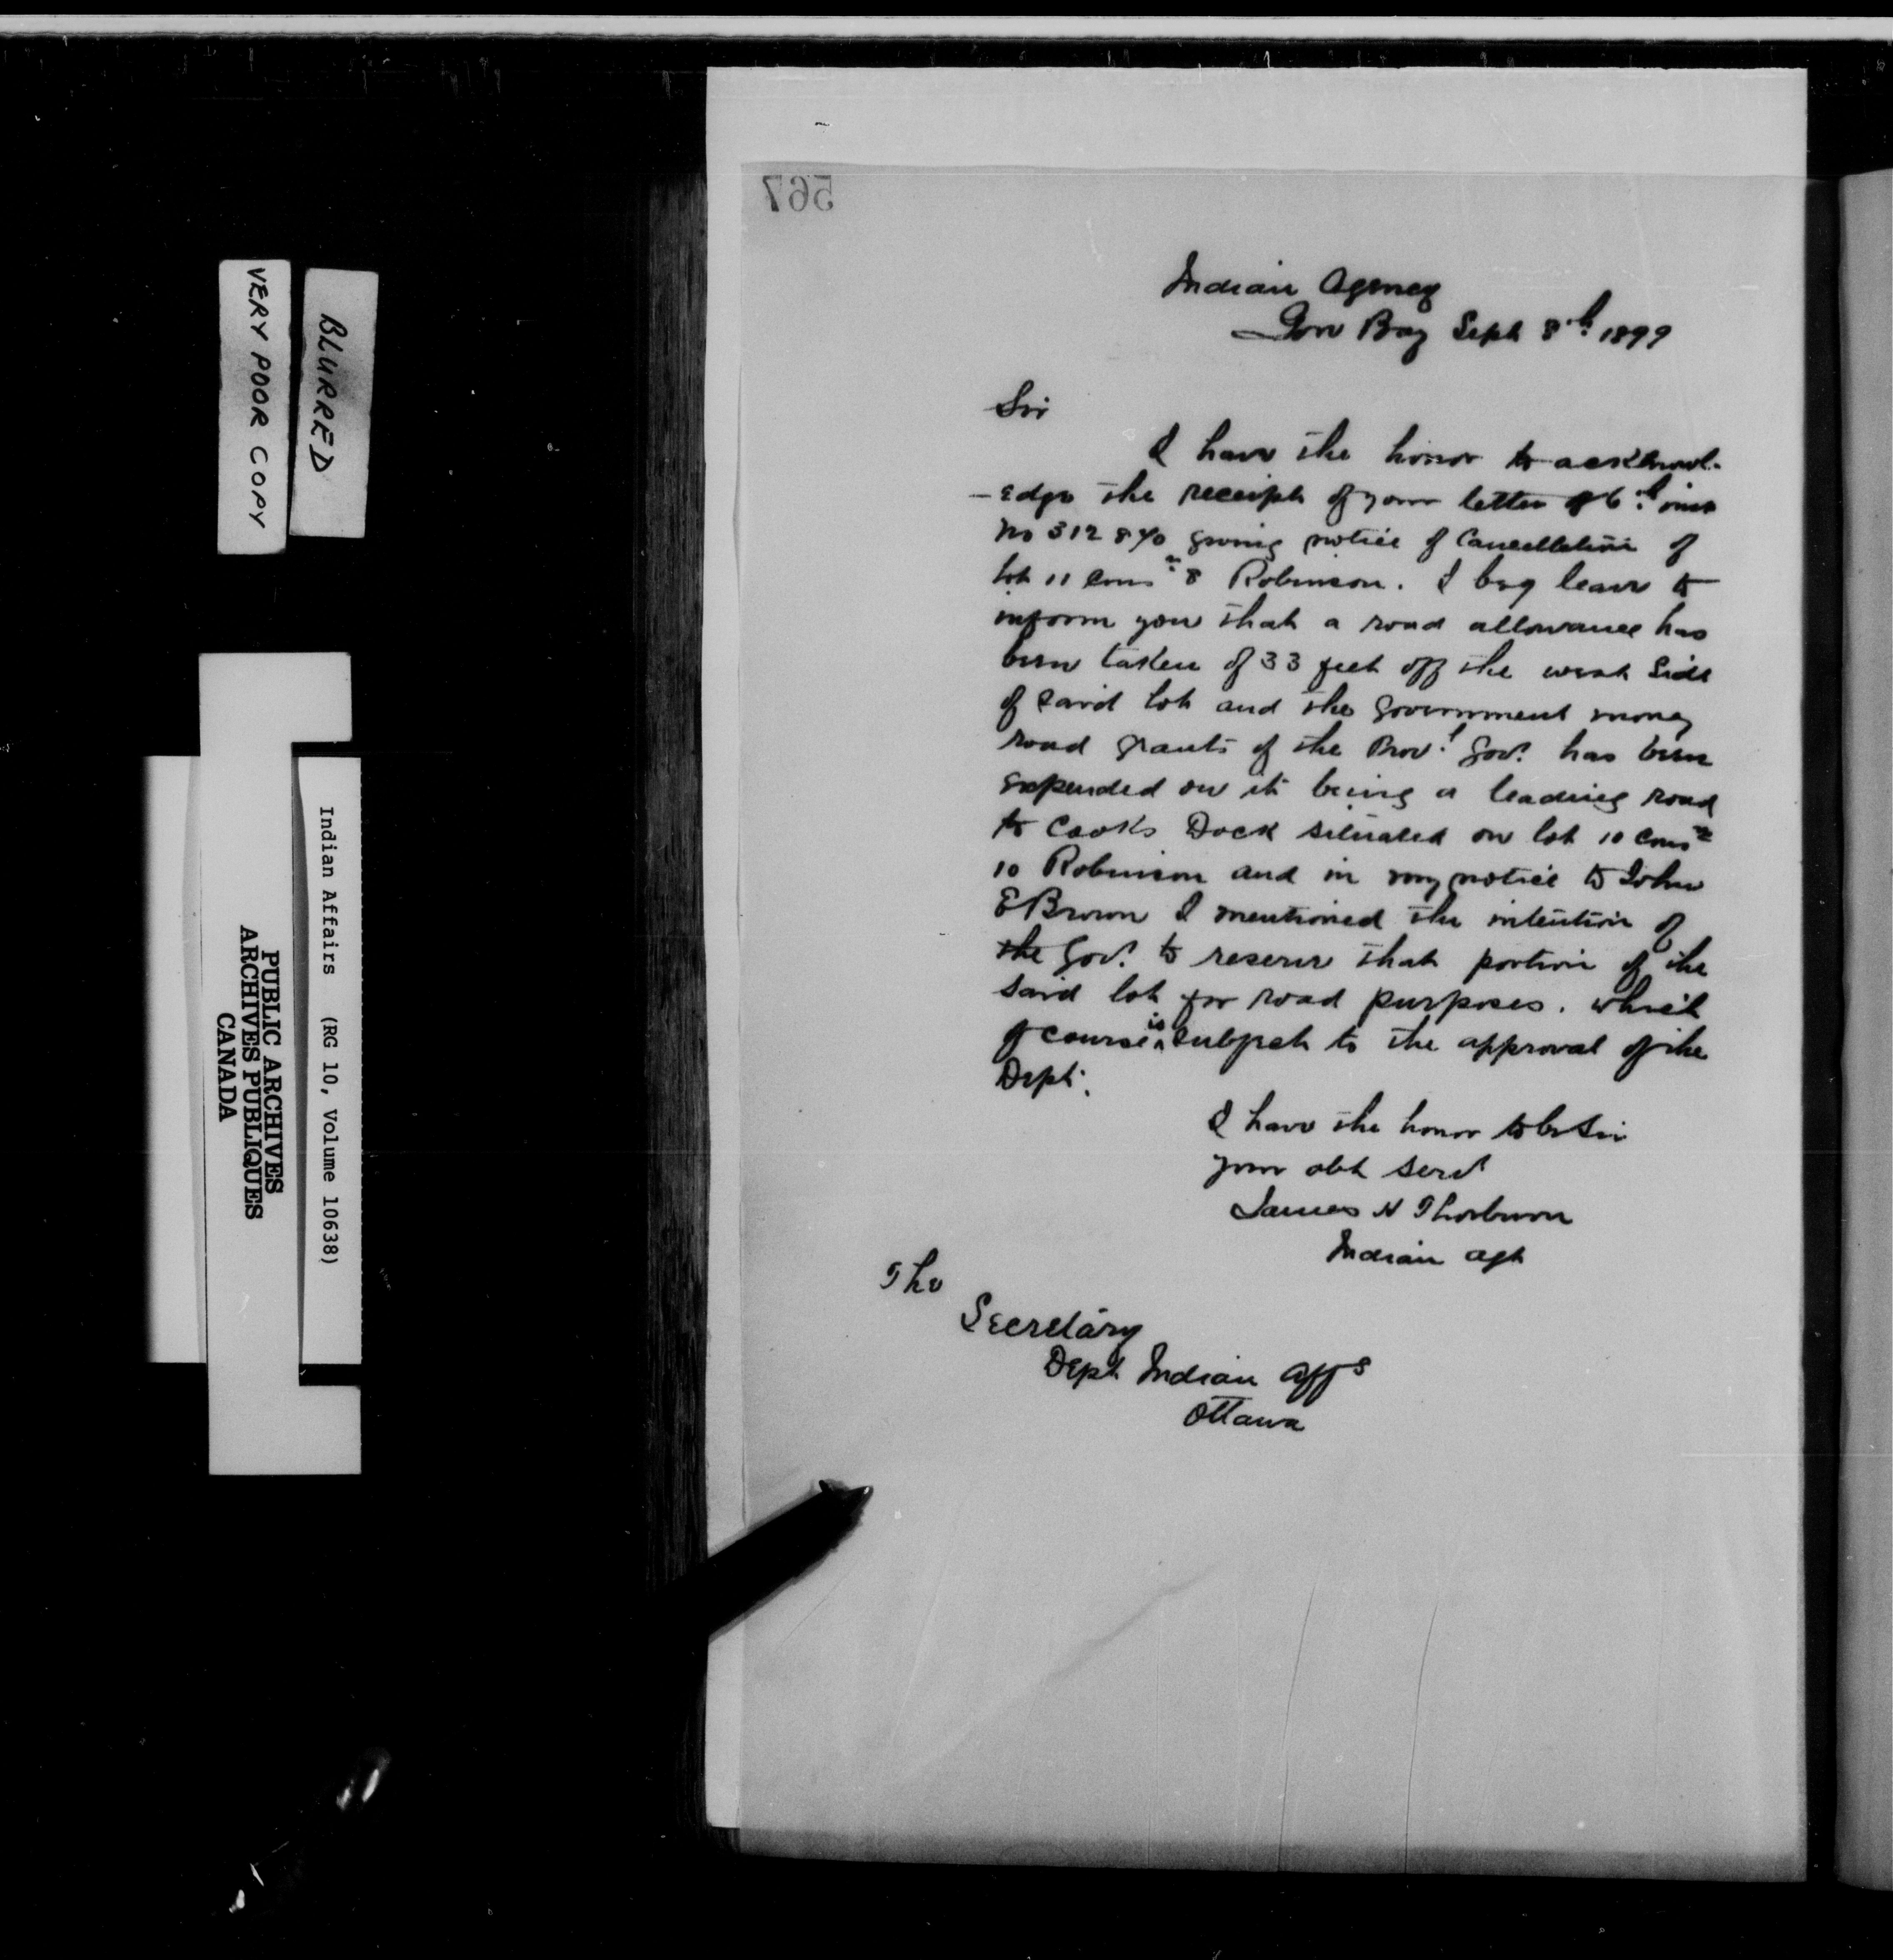 567
Indian Agency
Gore Bay Sept 8th 1899
Sir
I have the honor to acknowl-
-edge the receipt of your letter of 6th inst
No 312 840 giving notice of Cancellation of
lot 11 Consn 8 Robinson. I beg leave to
inform you that a road allowance has
been taken of 33 feet off the west Side
of said lot and the government money
road grants of the Provl Govt has been
expended on it being a leading road
to Cooks Dock situated on lot 10 Consn
10 Robinson and in my notice to John
E Brown I mentioned the intention of
the Govt to reserve that portion of the
said lot for road purposes. which
of course is subject to the approval of the
Dept.
I have the honor to be Sir
your obt servt
James H Thorburn
Indian agt
The
Secretary
Dept Indian Affs
Ottawa
BLURRED
VERY POOR COPY
Indian Affairs (RG 10, Volume 10638)
PUBLIC ARCHIVES
ARCHIVES PUBLIQUES
CANADA